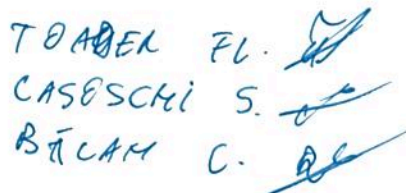 TOADER FL.
CASOSCHI S.
BĂLAM C.